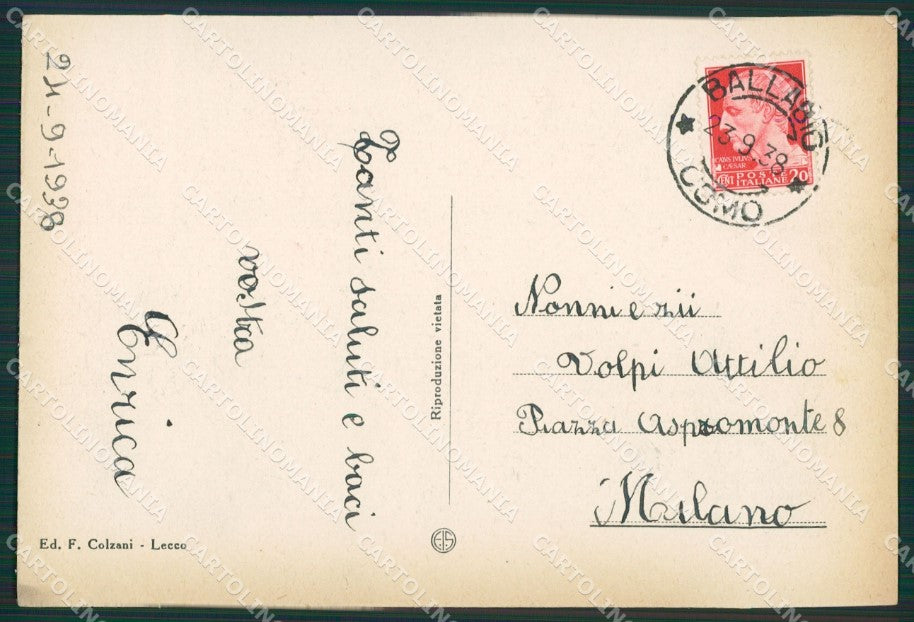 24-9-1938
Tanti saluti e baci
vostra
Enrica
Ed. F. Colzani - Lecco
Riproduzione vietata
BALLABIO
23.9.38
COMO
CAESAR
CENT POSTE 20
ITALIANE
Nonni e zii
Volpi Attilio
Piazza Aspromonte 8
Milano
CARTOLINOMANIA